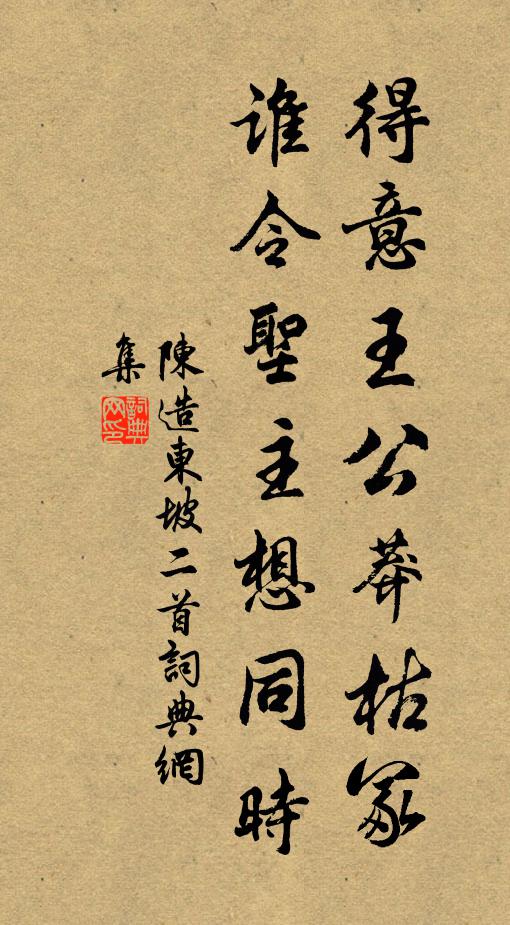 得意王公莽枯冢
誰令聖主想同時
陳造東坡二首詞典網
集
詞典
网印